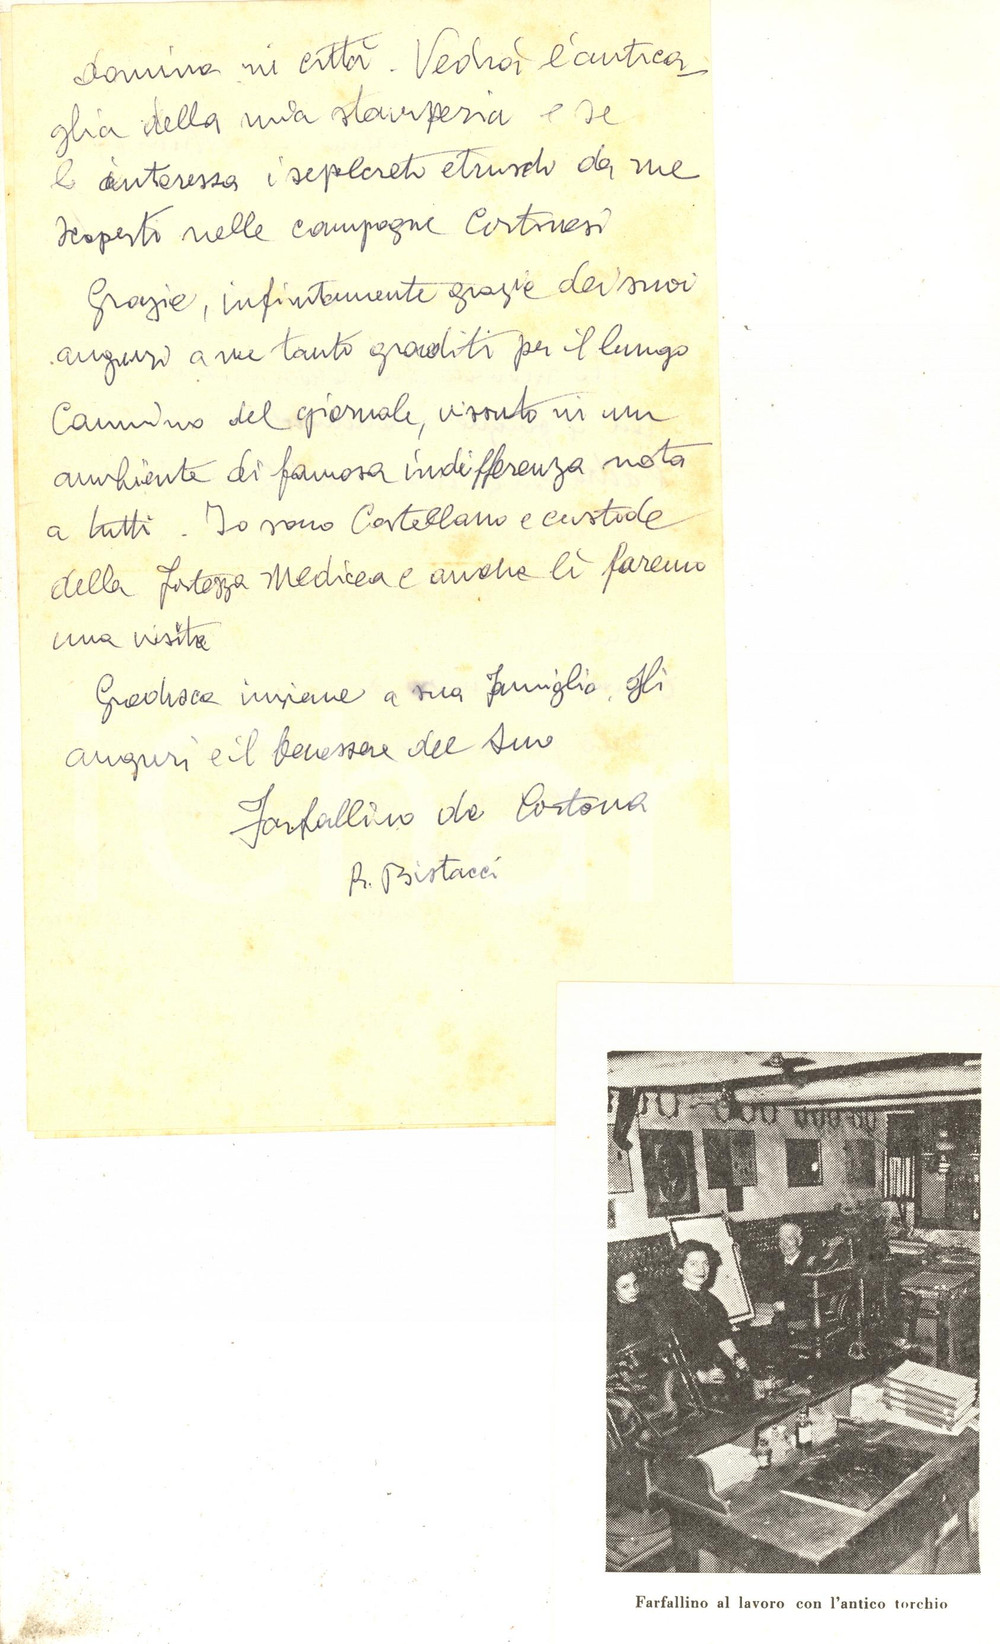 domina in città. Vedrai l'antica
glia della mia stamperia e se
le interessa i sepolcreti etruschi da me
scoperti nelle campagne Cortonesi
Grazie, infinitamente grazie dei suoi
auguri a me tanto graditi per il lungo
Cammino del giornale, vissuto in un
ambiente di famosa indifferenza nota
a tutti. Io sono Castellano e custode
della Fortezza Medicea e anche lì faremo
una visita
Gradisca insieme a sua famiglia, gli
auguri e il benessere del Suo
Farfallino da Cortona
R. Bistacci
Farfallino al lavoro con l'antico torchio